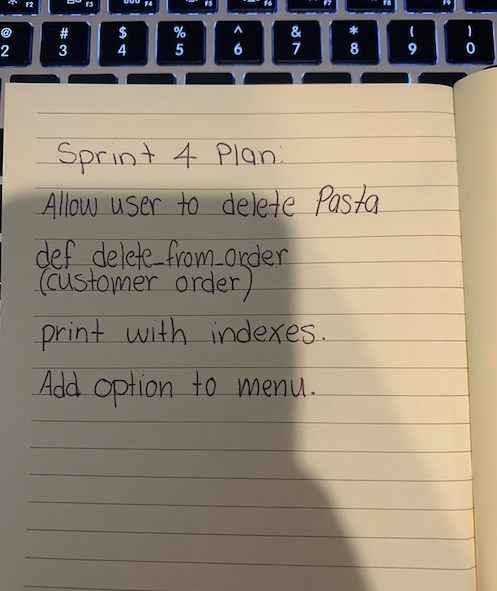 F2 F3 F4 F5 F6 F7 F8 F9
@ # $ % ^ & * ( )
2 3 4 5 6 7 8 9 0
Sprint 4 Plan:
Allow user to delete Pasta
def delete_from_order
(customer order)
print with indexes.
Add option to menu.